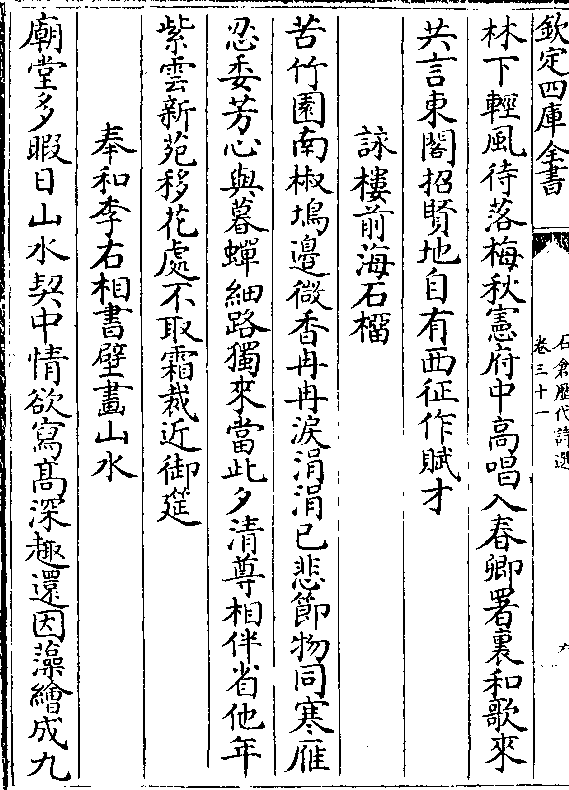 欽定四庫全書
石倉歷代詩選
卷三十一
林下輕風待落梅秋憲府中高唱入春卿署裏和歌來
共言東閣招賢地自有西征作賦才
詠樓前海石榴
苦竹園南椒塢邊微香冉冉淚涓涓已悲節物同寒雁
忍委芳心與暮蟬細路獨來當此夕清尊相伴省他年
紫雲新苑移花處不取霜裁近御筵
奉和李右相書壁畫山水
廟堂多暇日山水契中情欲寫高深趣還因藻繪成九